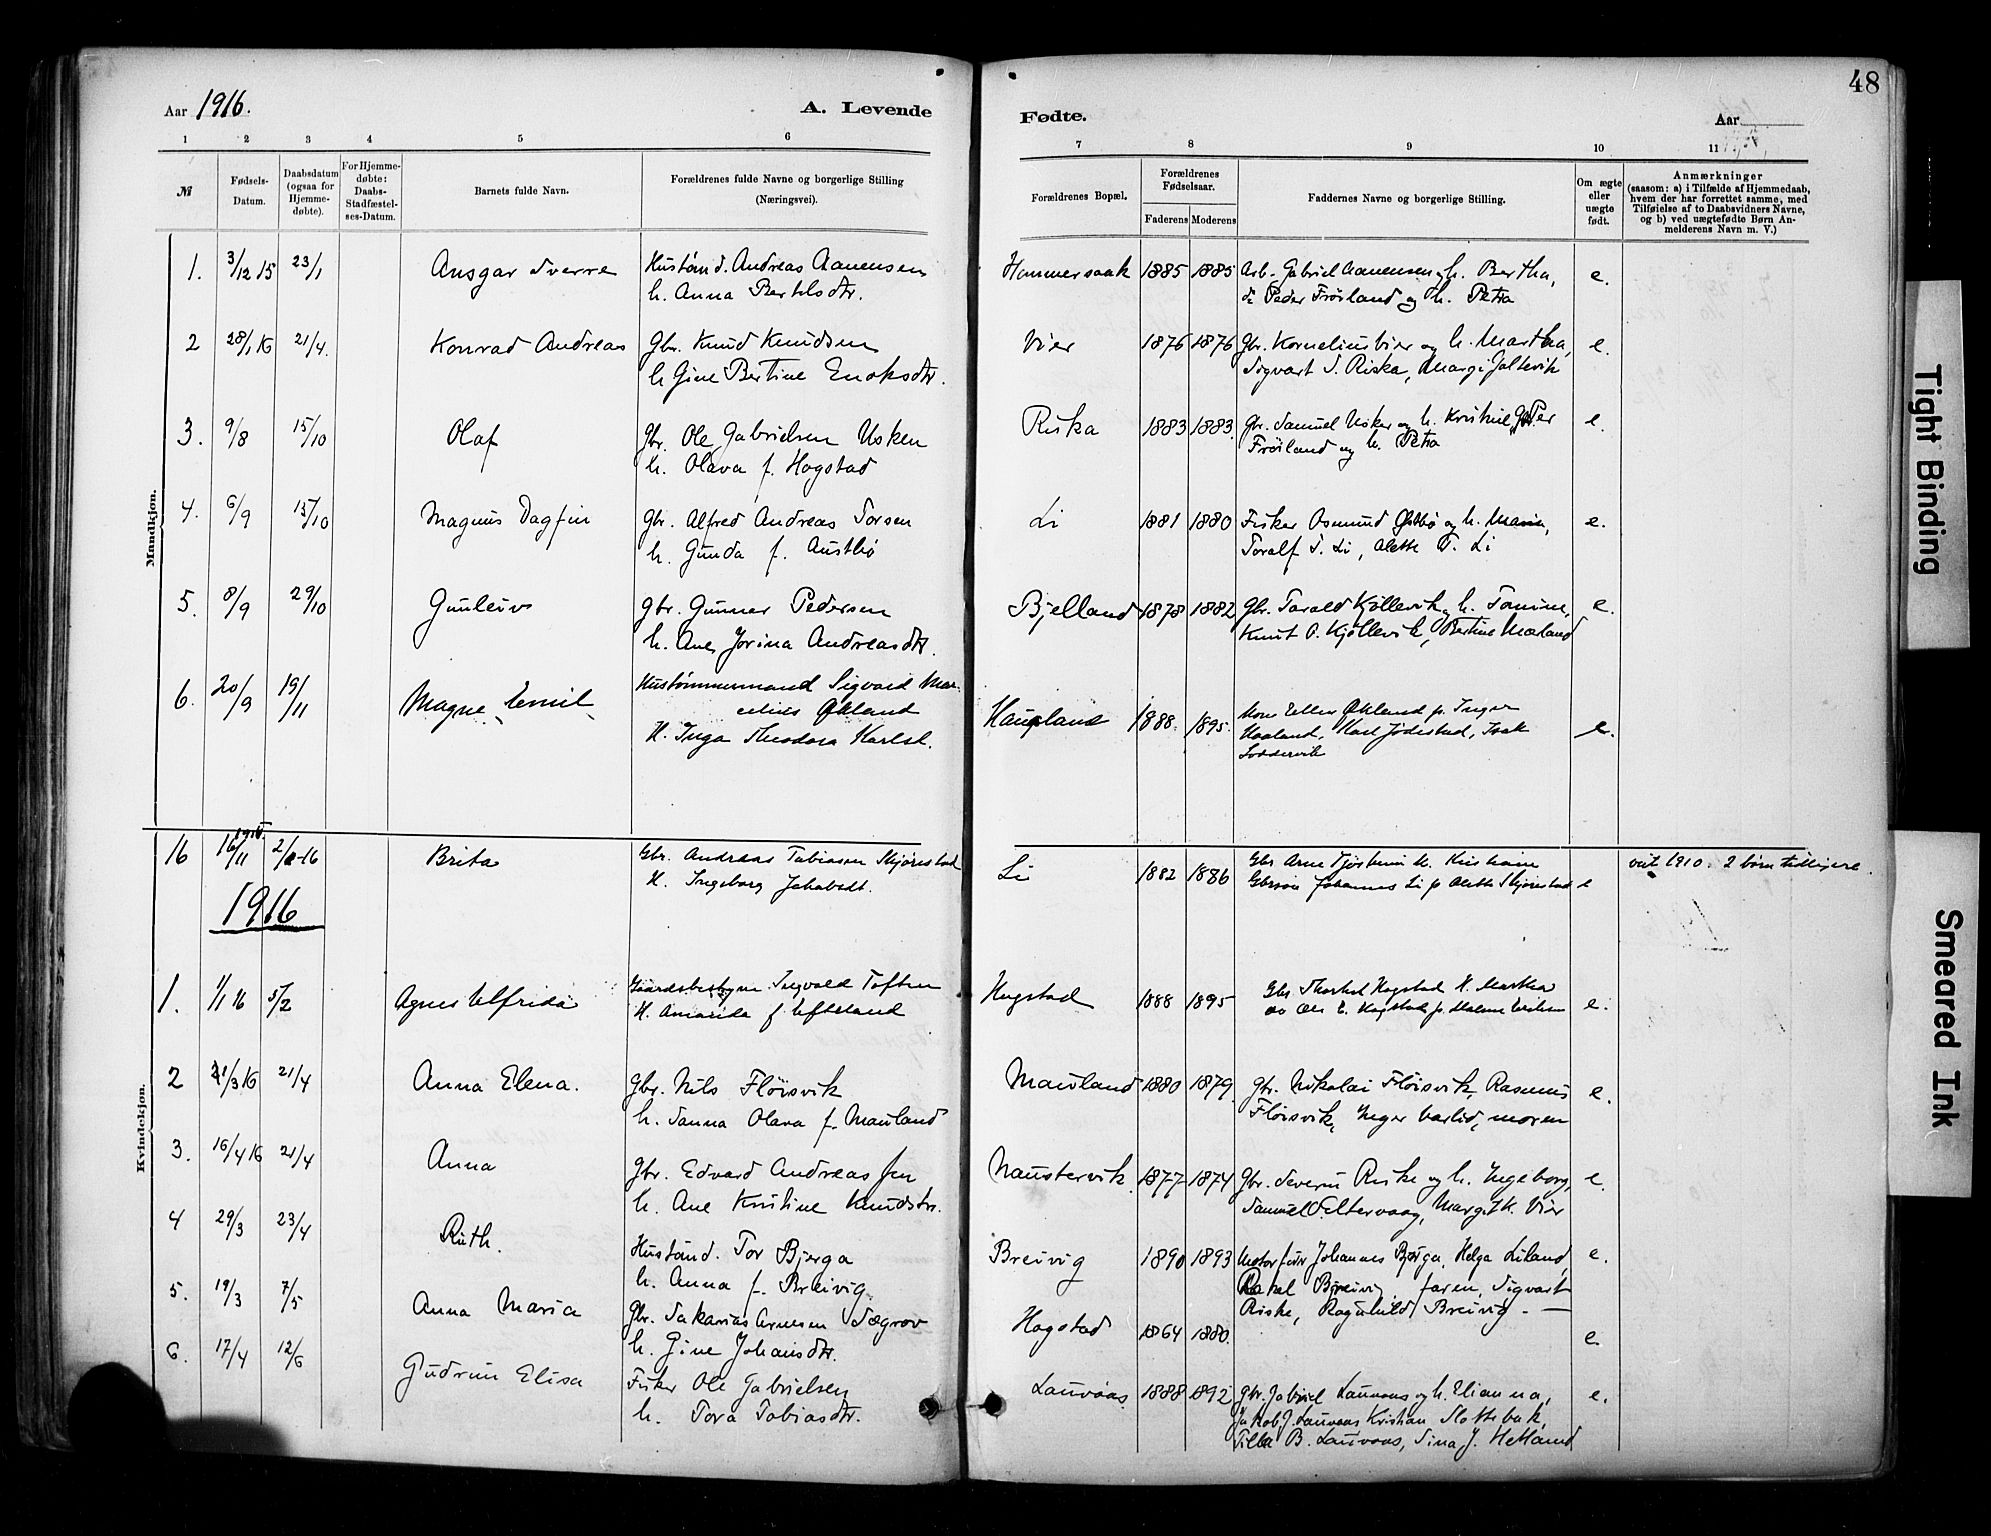 48
Aar 1916.
A. Levende
Fødte.
Aar
1 2 3 4 5 6 7 8 9 10 11
№
Fødsels-Datum.
Daabsdatum (ogsaa for Hjemmedøbte).
For Hjemmedøbte: Daabs-Stadfæstelses-Datum.
Barnets fulde Navn.
Forældrenes fulde Navne og borgerlige Stilling (Næringsvei).
Forældrenes Bopæl.
Forældrenes Fødselsaar.
Faderens Moderens
Faddernes Navne og borgerlige Stilling.
Om ægte eller uægte født.
Anmærkninger
(saasom: a) i Tilfælde af Hjemmedaab, hvem der har forrettet samme, med Tilføielse af to Daabsvidners Navne, og b) ved uægtefødte Børn Anmelderens Navn m. V.)
Mandkjøn.
1. 3/12 15 23/1 Ansgar Sverre Hustømd. Andreas Aanensen Hommersaak 1885 1885 Arb. Gabriel Aanensen og h. Bertha, e.
h. Anna Bertilsdtr. do Peder Frøiland og h. Petra
2 28/1 16 21/4. Konrad Andreas Gbr. Knud Knudsen Vier 1876 1876 Gbr. Kornelius Vier og h. Martha, e.
h. Gine Bertine Enoksdtr. Sigvart S. Riska, Margi Jaltevik
3. 9/8 15/10 Olaf Gbr. Ole Gabrielsen Usken Riska 1883 1883. Gbr. Samuel Usken og h. Kristine, Peder e.
h. Olava f. Hogstad Frøiland og h. Petra
4. 6/9 15/10 Magnus Dagfin Gbr. Alfred Andreas Torsen Li 1881 1880 Fisker Osmund Østbø og h. Marie, e.
h. Gunda f. Austbø Toralf T. Li, Alette T. Li
5. 8/9 29/10 Gunleiv Gbr. Gunner Pedersen Bjelland 1878 1882 Gbr. Tarald Kjøllevik og h. Tomine, e.
h. Ane Jorina Andreasdtr. Knut O. Kjøllevik, Bertine Mæland
6. 20/9 19/11 Magne Emil Hustømmermand Sigvald Mar-
celius Økland Haupland 1888. 1895. Kone Ellen Økland p. Inger e.
H. Inga Theodora Karlsd. Haaland, Karl Jødestad, Isak
16 16/11 1915. 2/1-16 Brita Gbr. Andreas Tobiasen Skjørestad Li 1882 1886 Gbr Arne Tjøstheim H. Kristiane viet 1910. 2 børn tidligere.
H. Ingeborg Jakobsdt. Gbrsøn Johannes Li p. Alette Skjørestad e
1916
Kvindekjøn.
1. 1/1 16 5/2 Agnes Alfrida Gaardsbestyrer Ingvald Toften Hogstad 1888 1895 Gbr Thorkel Hogstad H. Martha e.
H. Amanda f Efteland Ole E. Hogstad p.
2 21/3 16 21/4 Anna Elena. Gbr. Nils Fløisvik Mauland 1880 1879. Gbr. Nikolai Fløisvik, Rasmus e.
h. Sanna Olava f. Mauland Fløisvik, Inger Varlid, moren
3. 16/4 16 21/4 Anna Gbr. Edvard Andreas Jen Naustervik. 1877 1874 Gbr. Severin Riske og h. Ingeborg, e.
h. Ane Kristine Knudsdtr. Samuel Eltervaag, Margit K. Vier
4 29/3 23/4 Ruth. Hustømd. Tor Bjerga Breivig 1890 1893 Johannes Bjerga, Helga Liland, e.
h. Anna f. Breivig. Rakel Breivig, faren, Sigvart
5. 19/3 7/5 Anna Maria Gbr. Sakarias Arnesen Sægrov Hogstad 1864 1880. Riske, Ragnhild Breivig. — e.
h. Gine Johansdtr.
6. 17/4 12/6 Gudrun Elisa Fisker Ole Gabrielsen Lauvaas. 1888 1892 Gbr. Gabriel Lauvaas og h. Elianna, e.
h. Tora Tobiasdtr. Jakob J. Lauvaas Kristian Slottebak,
B. Lauvaas, Sina J. Hetland
Tight Binding
Smeared Ink